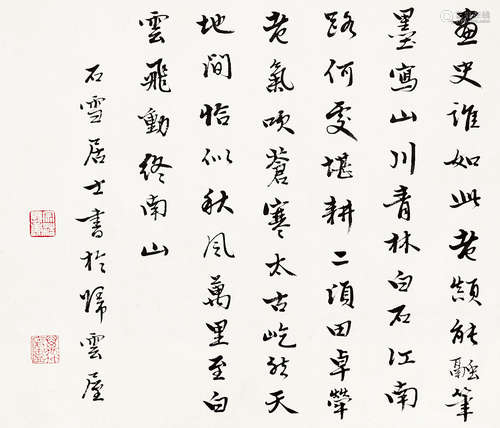 畫史誰如此老顛能融筆
墨寫山川青林白石江南
路何處堪耕二頃田卓犖
老氣吹蒼寒太古屹然天
地間恰似秋風萬里至白
雲飛動終南山
石雪居士書於歸雲